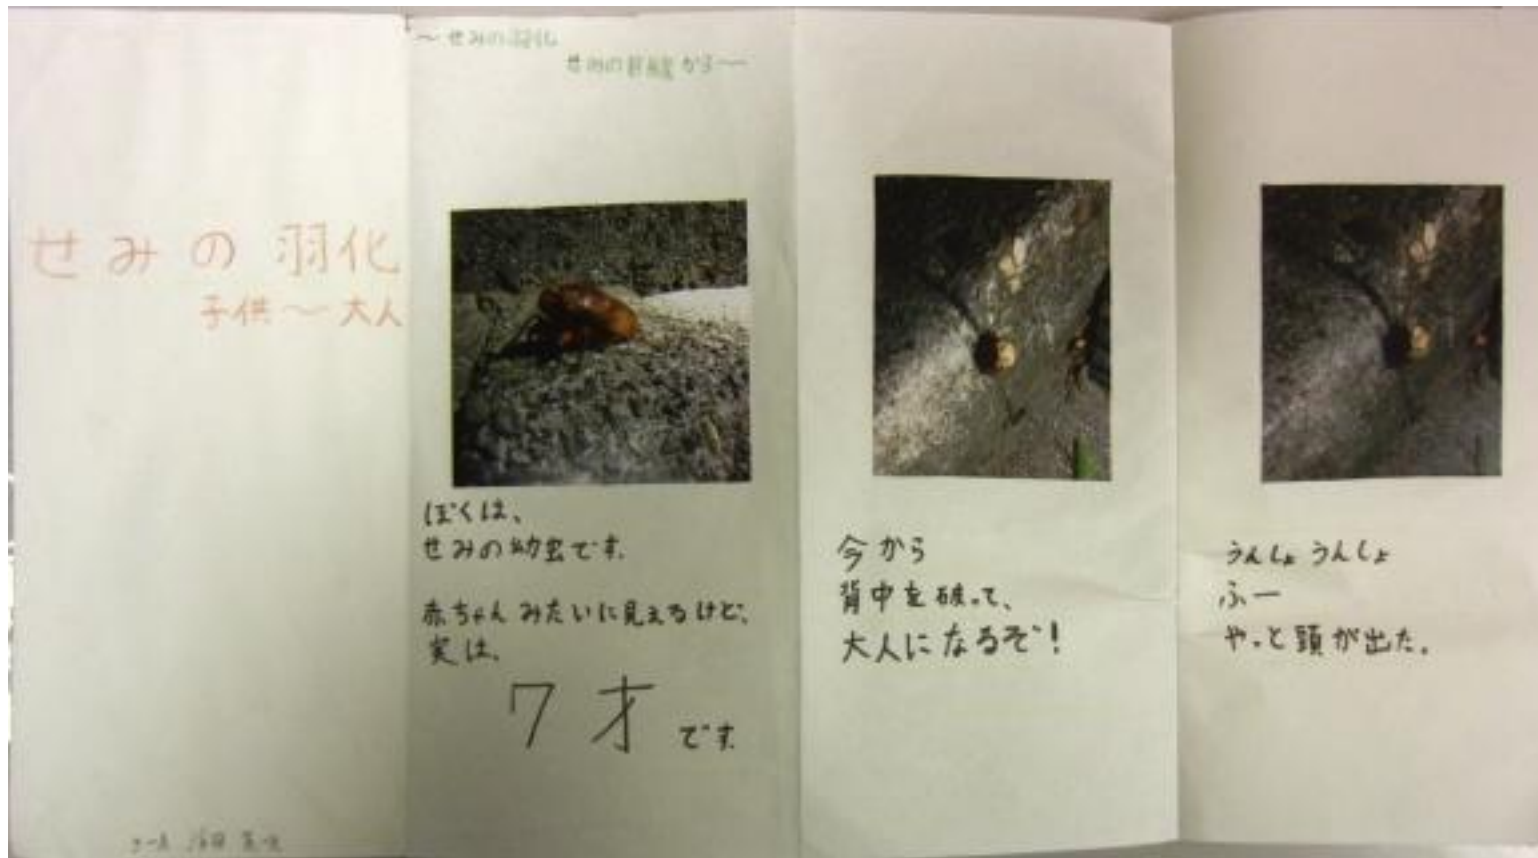 せみの羽化
子供〜大人
〜せみの羽化
せみの から〜
ぼくは、
せみの幼虫です。
赤ちゃんみたいに見えるけど、
実は、
7才です
今から
背中を破って、
大人になるぞ!
うんしょうんしょ
ふー
やっと頭が出た。